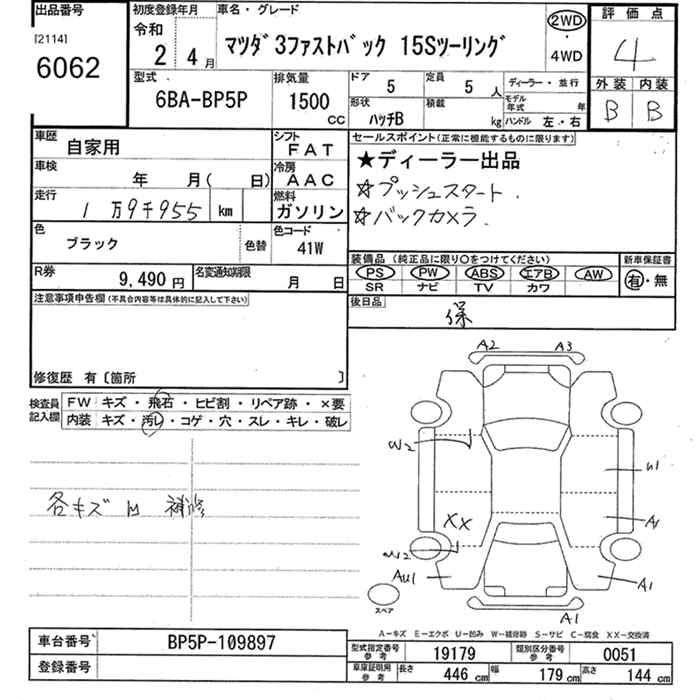 出品番号
[2114]
6062
初度登録年月
令和
2 4月
車名・グレード
マツダ3ファストバック 15Sツーリング
2WD
・
4WD
評価点
4
外装 内装
B B
型式
6BA-BP5P
排気量
1500
CC
ドア
5
定員
5 人
形状
ハッチB
積載
kg
ディーラー・並行
モデル年式 年
ハンドル 左・右
車歴
自家用
シフト
FAT
車検
年 月( 日)
冷房
AAC
走行
1万9千955 km
燃料
ガソリン
色
ブラック
色替
色コード
41W
R券
9,490円
名変通知期限
月 日
セールスポイント(正常に機能するものに限ります)
★ディーラー出品
☆プッシュスタート.
☆バックカメラ.
装備品(純正品に限り〇をつけてください)
PS PW ABS エアB AW
SR ナビ TV カワ
新車保証書
有・無
後日品
保
注意事項申告欄(不具合内容等は具体的に記入して下さい)
修復歴 有〔箇所 〕
検査員記入欄
FW キズ・飛石・ヒビ割・リペア跡・×要
内装 キズ・汚レ・コゲ・穴・スレ・キレ・破レ
各キズ 補修
A2 A3
W2
U1
XX
A1
W2
AU1
A1
スペア
A1
A-キズ E-エクボ U-凹み W-補修跡 S-サビ C-腐食 XX-交換済
車台番号
BP5P-109897
登録番号
型式指定番号 参考
19179
類別区分番号 参考
0051
車庫証明用 参考
長さ 446 cm 幅 179 cm 高さ 144 cm